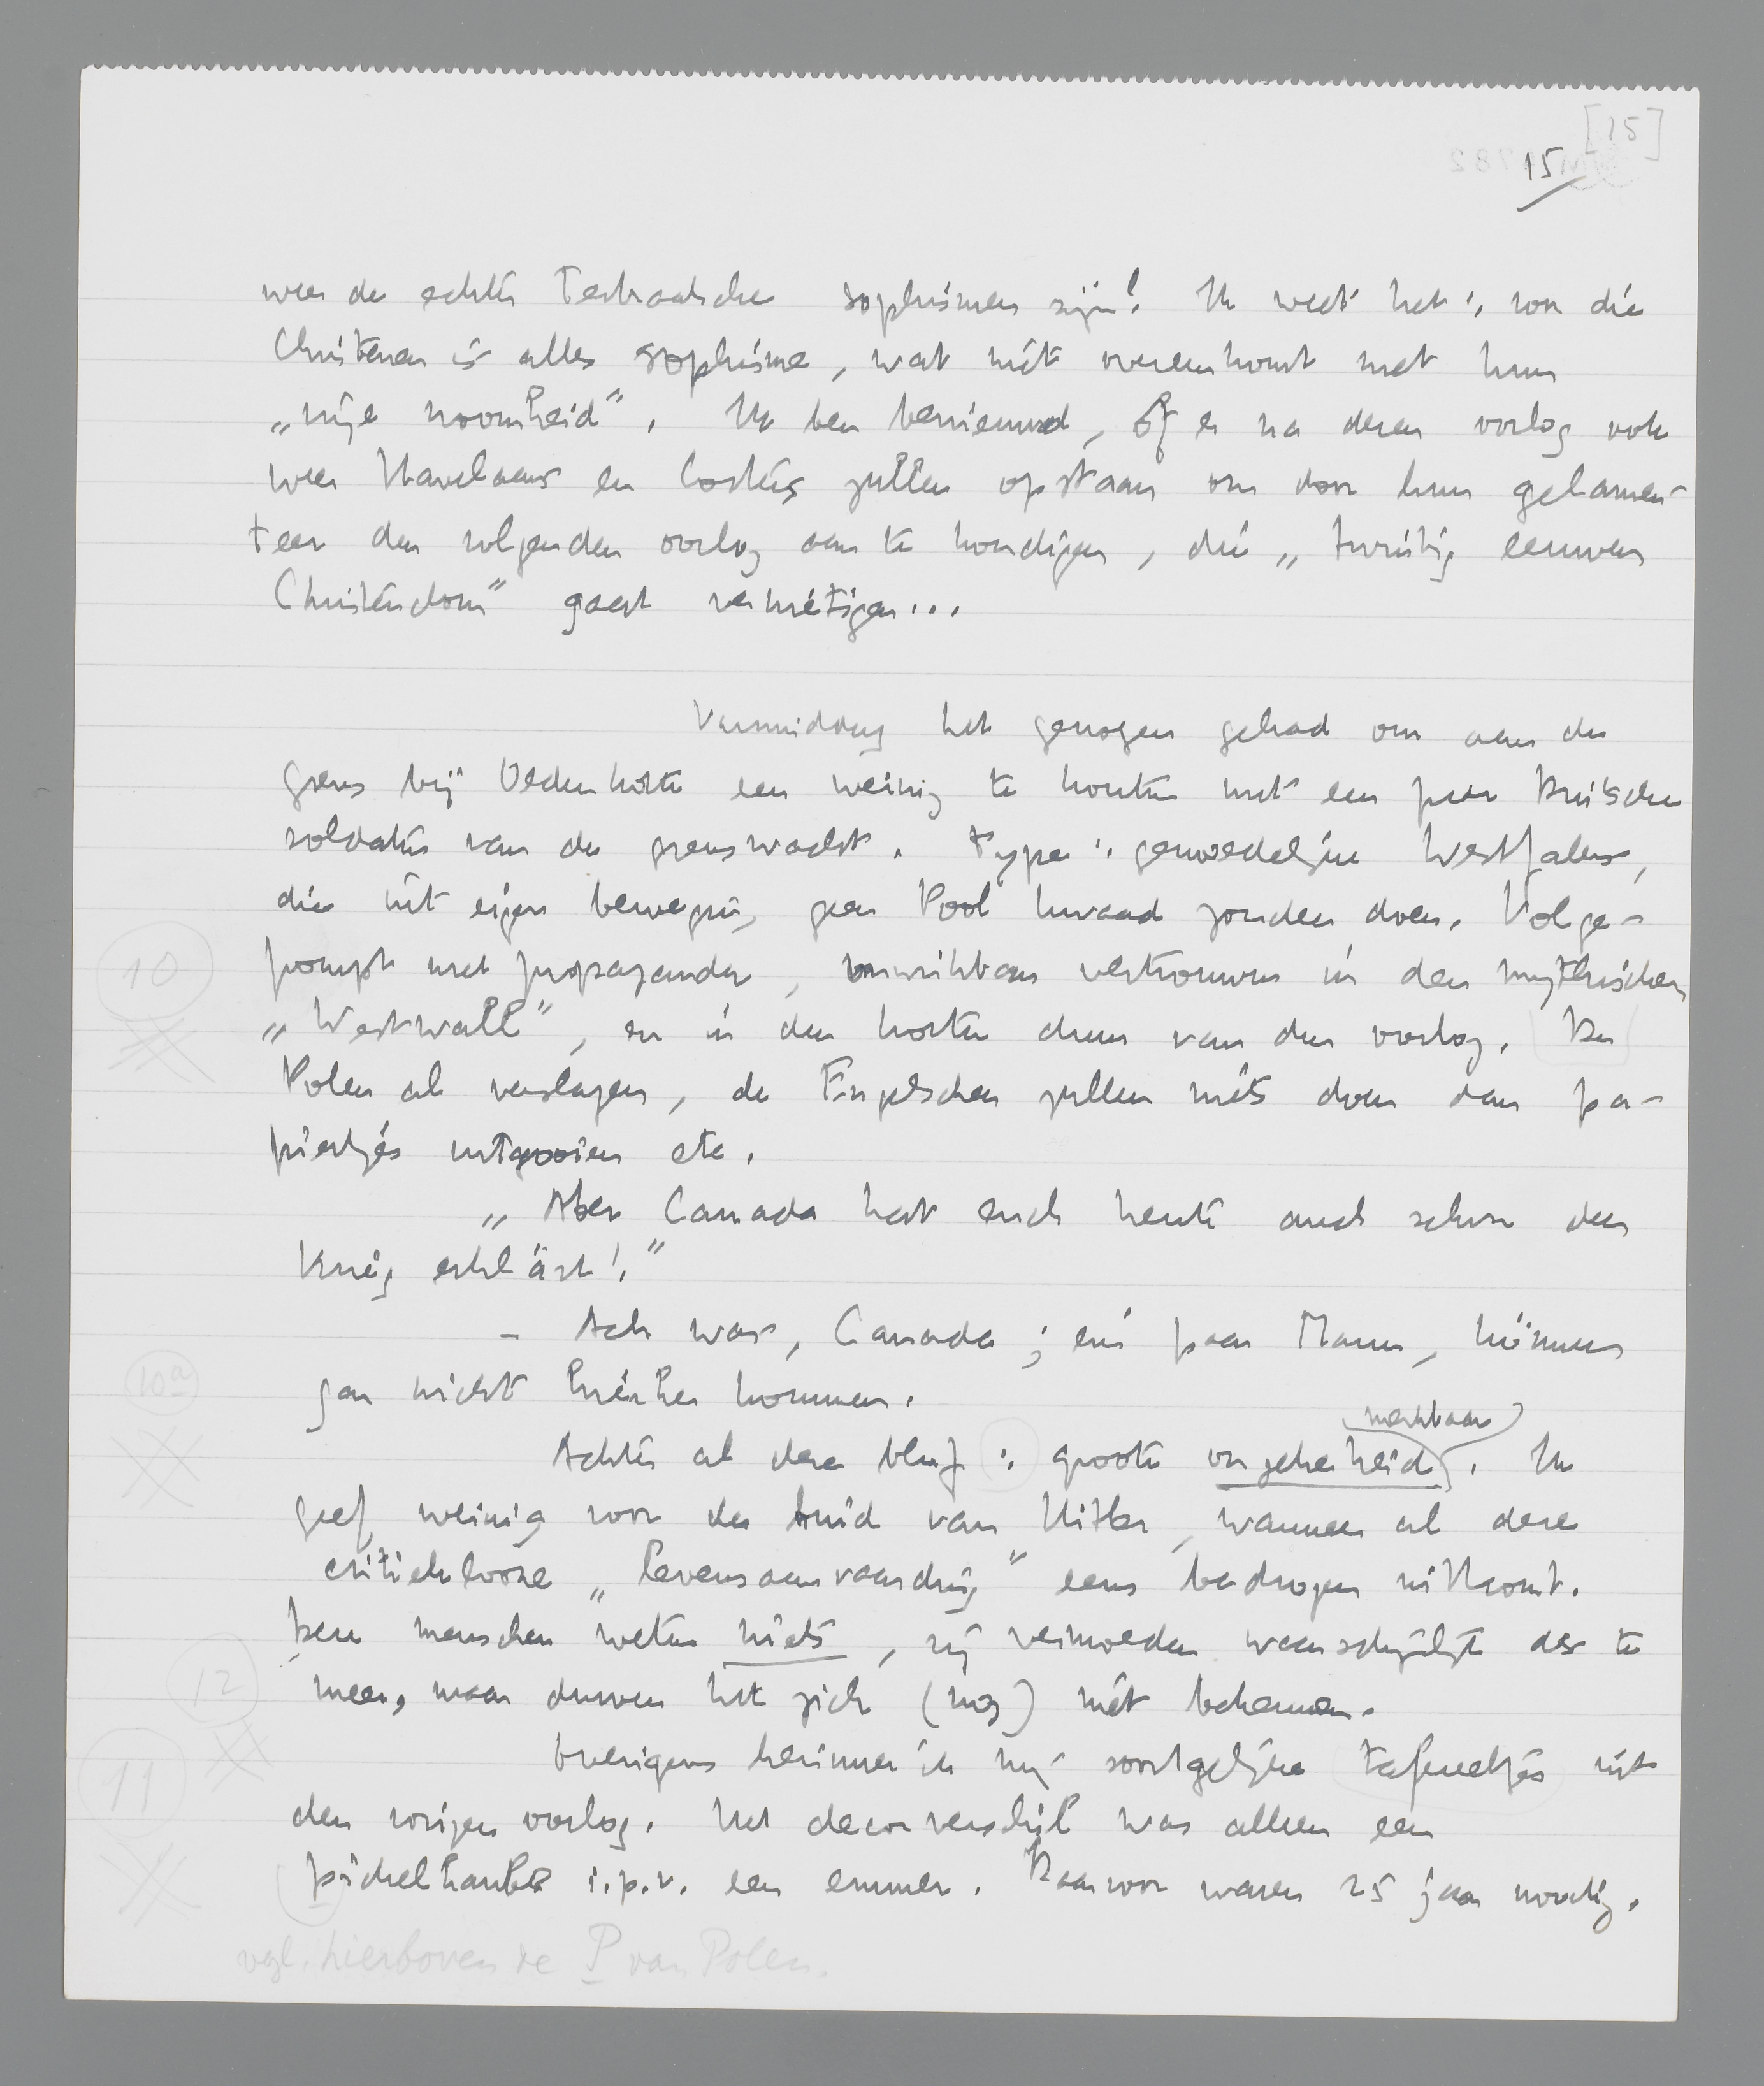 [15]
15
weer de echte Terbraaksche sophismen zijn! Ik weet het: voor die
Christenen is alles sophisme, wat niet overeenkomt met hun
„vrije waarheid". Ik ben benieuwd, óf er na dezen oorlog ook
weer Havelaars en Costers zullen opstaan om door hun gelamen-
teer den volgenden oorlog aan te kondigen, die „twintig eeuwen
Christendom" gaat vernietigen...
Vanmiddag het genoegen gehad om aan de
grens bij Oedenkotte een weinig te kouten met een paar Duitsche
soldaten van de grenswacht. Type: gemoedelijke Westfalers,
die uit eigen beweging geen Pool kwaad zouden doen. Volge-
pompt met propaganda, onwrikbaar vertrouwen in den mythischen
„Westwall", en in den korten duur van den oorlog. De
Polen al verslagen, de Engelschen zullen niets doen dan pa-
piertjes uitgooien etc.
„Aber Canada hat euch heute auch schon den
Krieg erklärt!"
– Ach was, Canada; ein paar Mann, können
gar nicht hierher kommen.
merkbaar
Achter al deze bluf: groote onzekerheid. Ik
geef weinig voor de huid van Hitler, wanneer al deze
critieklooze „levensaanvaarding" eens bedrogen uitkomt.
Deze menschen weten niets, zij vermoeden waarschijnlijk des te
meer, maar durven het zich (nog) niet bekennen.
Overigens herinner ik mij soortgelijke tafereeltjes uit
den vorigen oorlog. Het decorverschil was alleen een
pickelhaube i.p.v. een emmer. Daarvoor waren 25 jaar noodig.
10
10a
12
11
vgl. hierboven de P van Polen.